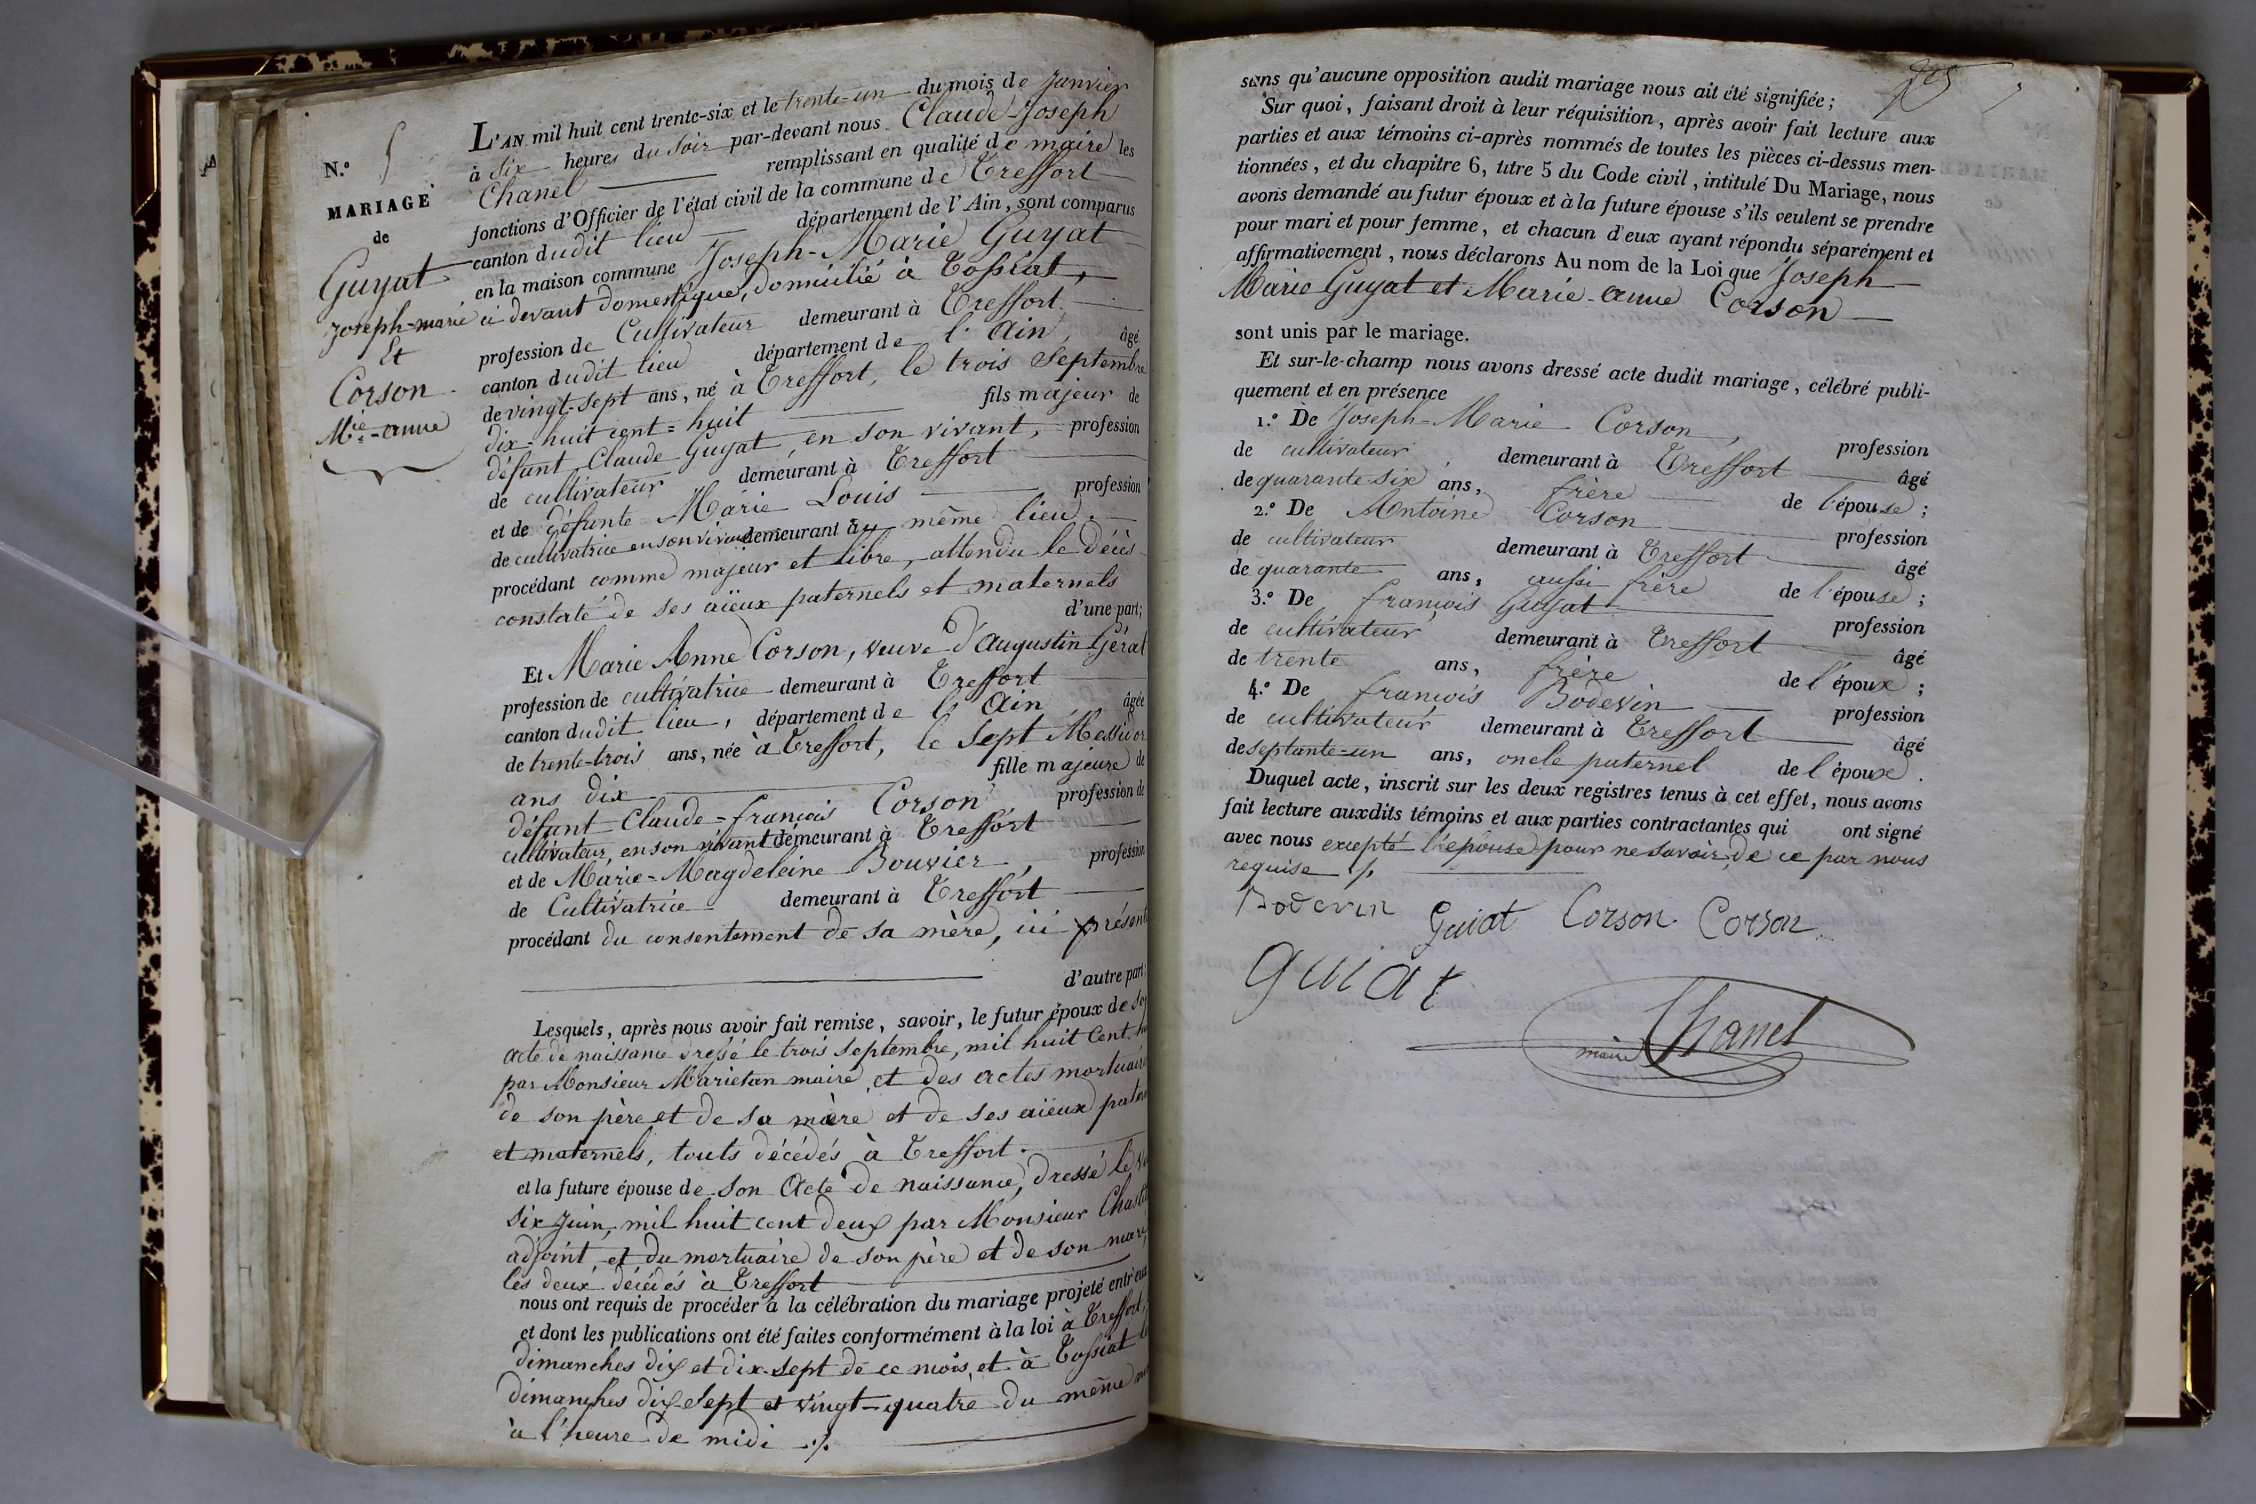 N.o 5
MARIAGE
de
Guyat
Joseph-marie
Et
Corson
Mie-anne
L'AN mil huit cent trente-six et le trente-un du mois de Janvier
à six heures du soir par-devant nous Claude-Joseph
Chanel remplissant en qualité de maire les
fonctions d'Officier de l'état civil de la commune de Treffort
canton dudit lieu département de l'Ain, sont comparus
en la maison commune Joseph-Marie Guyat
ci devant domestique, domicilié à Tossiat,
profession de Cultivateur demeurant à Treffort
canton dudit lieu département de l'Ain âgé
de vingt-sept ans, né à Treffort, le trois Septembre
dix-huit cent-huit fils majeur de
défunt Claude Guyat en son vivant, profession
de cultivateur demeurant à Treffort
et de défunte Marie Louis profession
de cultivatrice en son vivant demeurant au même lieu.
procédant comme majeur et libre, attendu le décès
constaté de ses aïeux paternels et maternels
d'une part;
Et Marie Anne Corson, veuve d'Augustin Géral
profession de cultivatrice demeurant à Treffort
canton dudit lieu, département de l'Ain âgée
de trente-trois ans, née à Treffort, le sept Messidor
ans dix fille majeure de
défunt Claude-françois Corson profession de
cultivateur, en son vivant demeurant à Treffort
et de Marie-Magdeleine Bouvier, profession
de Cultivatrice demeurant à Treffort
procédant du consentement de sa mère, ici présent
d'autre part;
Lesquels, après nous avoir fait remise, savoir, le futur époux de son
acte de naissance dressé le trois septembre, mil huit cent
par Monsieur Marietan maire et des actes mortuaire
de son père et de sa mère et de ses aïeux
et maternels, touts décédés à Treffort.
et la future épouse de son Acte de naissance, dressé le
six Juin, mil huit cent deux par Monsieur
adjoint, et du mortuaire de son père et de son mari,
les deux décédés à Treffort
nous ont requis de procéder à la célébration du mariage projeté entr'eux
et dont les publications ont été faites conformément à la loi à Treffort,
dimanches dix et dix-sept de ce mois et à Tossiat
dimanches dix sept et vingt-quatre du même
à l'heure de midi ./.
sans qu'aucune opposition audit mariage nous ait été signifiée;
Sur quoi, faisant droit à leur réquisition, après avoir fait lecture aux
parties et aux témoins ci-après nommés de toutes les pièces ci-dessus men-
tionnées, et du chapitre 6, titre 5 du Code civil, intitulé Du Mariage, nous
avons demandé au futur époux et à la future épouse s'ils veulent se prendre
pour mari et pour femme, et chacun d'eux ayant répondu séparément et
affirmativement, nous déclarons Au nom de la Loi que Joseph
Marie Guyat et Marie-anne Corson
sont unis par le mariage.
Et sur-le-champ nous avons dressé acte dudit mariage, célébré publi-
quement et en présence
1.o De Joseph-Marie Corson, profession
de cultivateur demeurant à Treffort âgé
de quarante six ans, frère de l'épouse;
2.o De Antoine Corson profession
de cultivateur demeurant à Treffort âgé
de quarante ans, aussi frère de l'épouse;
3.o De françois Guyat profession
de cultivateur demeurant à Treffort âgé
de trente ans, frère de l'époux;
4.o De françois Bodevin profession
de cultivateur demeurant à Treffort âgé
de septante-un ans, oncle paternel de l'époux.
Duquel acte, inscrit sur les deux registres tenus à cet effet, nous avons
fait lecture auxdits témoins et aux parties contractantes qui ont signé
avec nous excepté l'épouse pour ne savoir, de ce par nous
requise ./.
Bodevin Guiat Corson Corson
guiat
maire Chanel